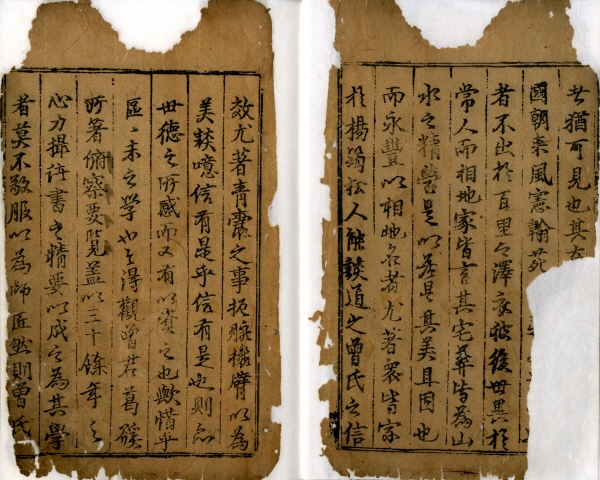 猶可見也其在
國朝来風憲翰苑
者不出於百里之澤家被後世異於
常人而相地家皆言其宅葬皆為山
水之精灵是以若是其美耳因也
而永豐以相地名者尤著眾皆家
於楊筠松人能談道之曾氏之信
效尤著青囊之事扼腕攘臂以為
美談噫信有是乎信有是也則亦
世德之所感而又有以資之也歟惜乎
區〻未之學也今得觀曾君葛溪
所著俯察要覽蓋以三十餘年之
心力撮諸書之精要以成之為其學
者莫不敬服以為師匠然則曾氏